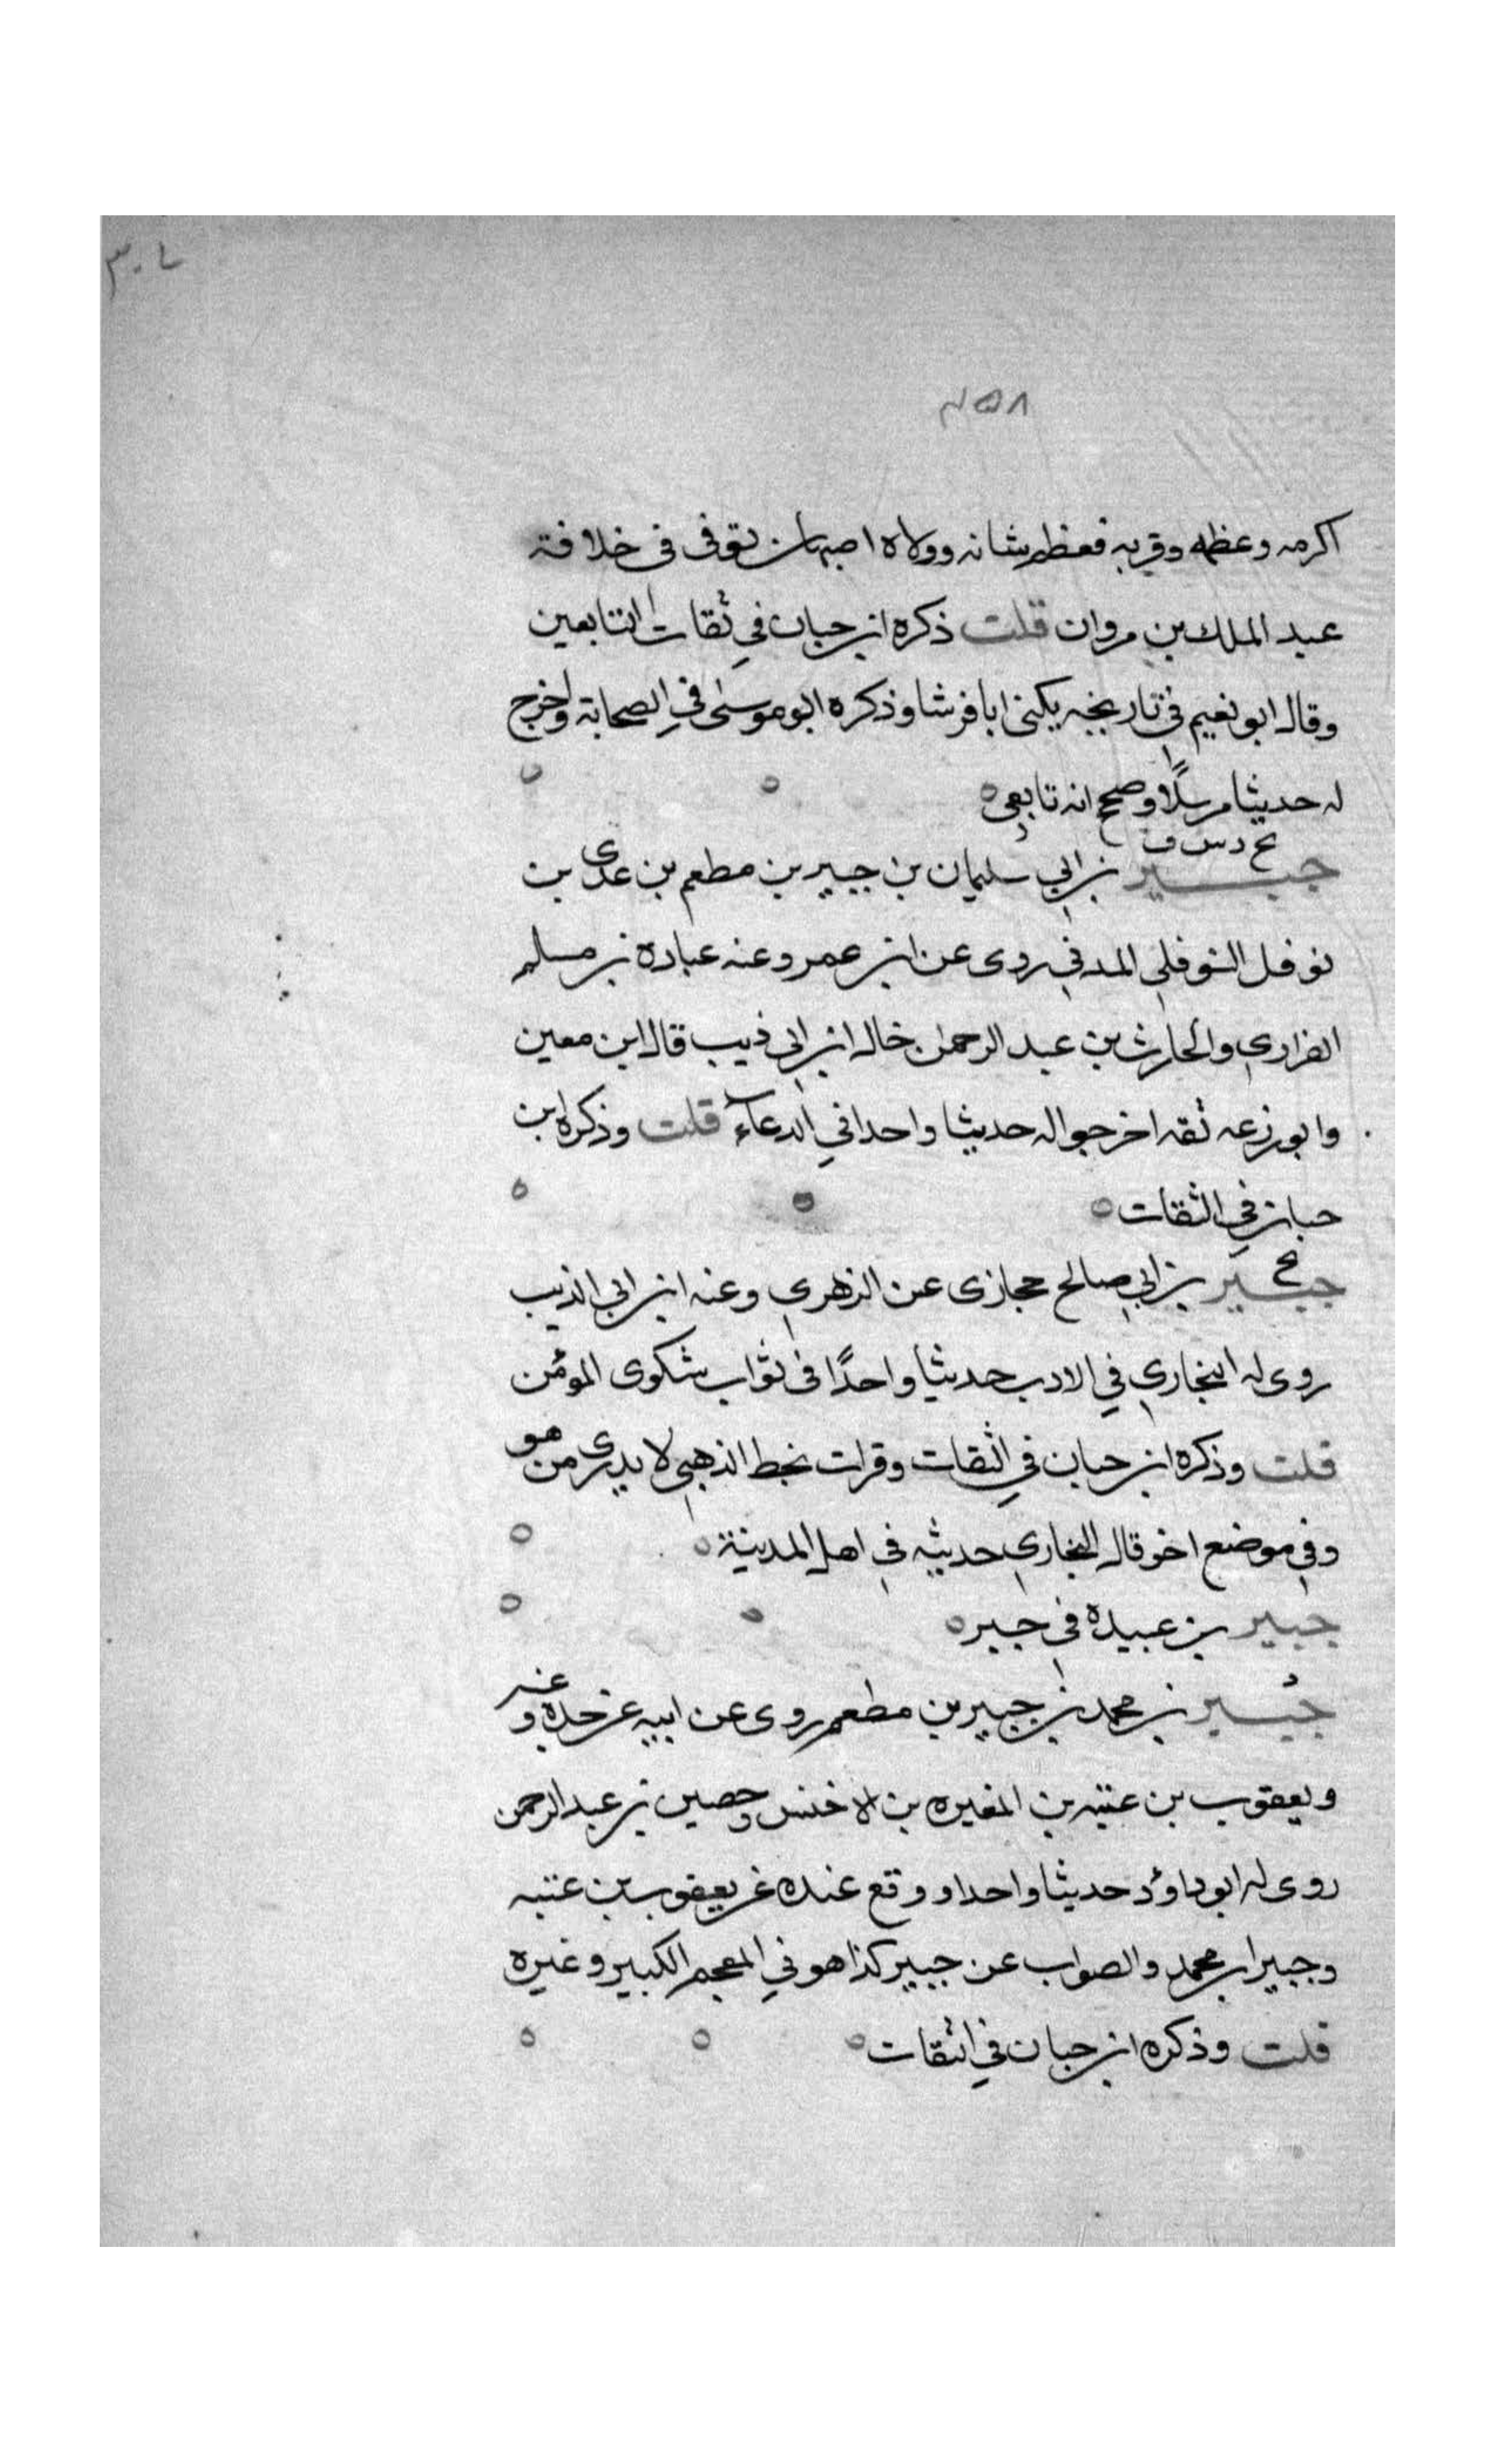 اكرمه وعظمه وقربه فعظم شانه وولاه اصبهان توفى فى خلافة
عبد الملك بن مروان قلت ذكره ابن حبان في ثقات التابعين
وقال ابو نعيم في تاريخه يكنى ابا فرشا وذكره ابو موسى في الصحابة واخرج
له حديثا مرسلًا وصحح انه تابعي
بخ د س ق
جبير بن ابي سليمان بن جبير بن مطعم بن عدى بن
نوفل النوفلي المدني روى عن ابن عمر وعنه عبادة بن مسلم
الفزاري والحارث بن عبد الرحمن خال ابن ابي ذيب قال ابن معين
وابو زرعه ثقه اخرجوا له حديثا واحدا في الدعآء قلت وذكره ابن
حبان في الثقات
بخ
جبير بن ابي صالح حجازى عن الزهري وعنه ابن ابي الذيب
روى له البخاري في الادب حديثا واحدًا فى ثواب شكوى المؤمن
قلت وذكره ابن حبان في الثقات وقرات بخط الذهبي لا يدرى من هو
وفي موضع اخر قال البخاري حديثه في اهل المدينة
جبير بن عبيدة في جبر
د
جُبير بن محمد بن جبير بن مطعم روى عن ابيه عن جده وعنه
ويعقوب بن عتبه بن المغيره بن الاخنس وحصين بن عبد الرحمن
روى له ابو داوُد حديثا واحدا ووقع عنده عن يعقوب بن عتبه
وجبير ابن محمد والصواب عن جبير كذا هو في المعجم الكبير وغيره
قلت وذكره ابن حبان في الثقات